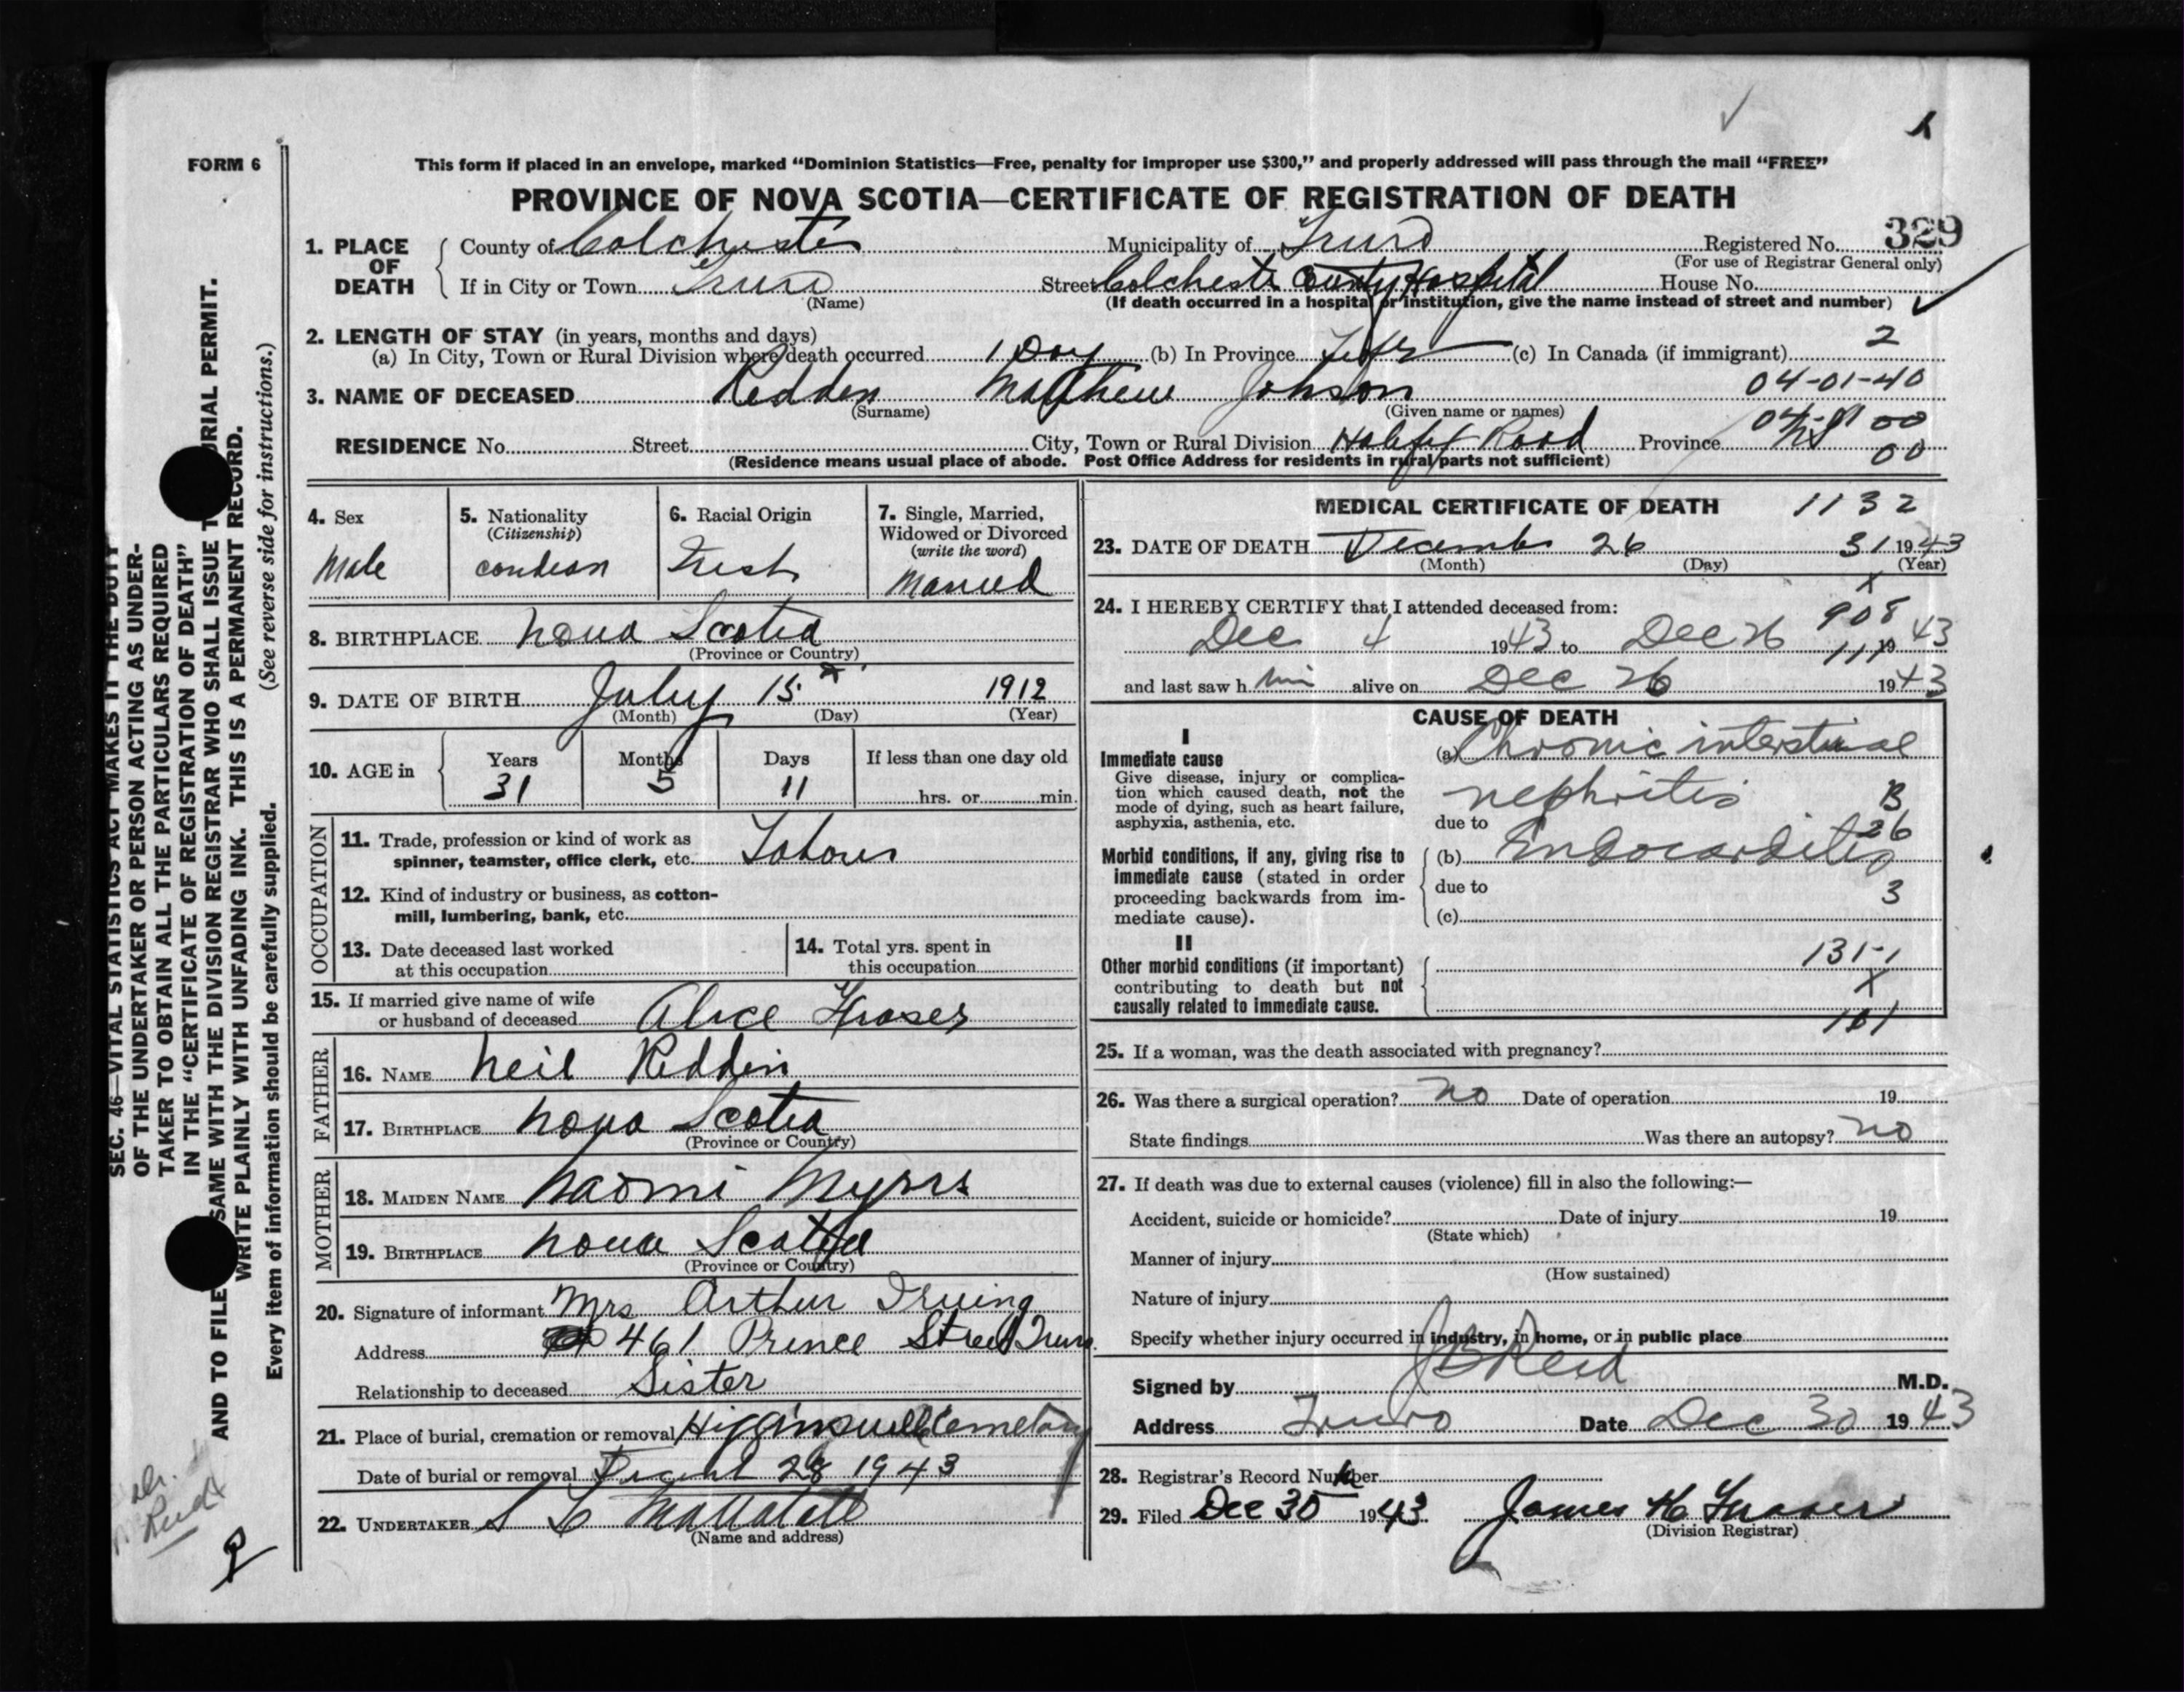 FORM 6
This form if placed in an envelope, marked "Dominion Statistics—Free, penalty for improper use $300," and properly addressed will pass through the mail "FREE"
PROVINCE OF NOVA SCOTIA—CERTIFICATE OF REGISTRATION OF DEATH
1. PLACE OF DEATH
County of Colchester Municipality of Truro Registered No. 329
(For use of Registrar General only)
If in City or Town Truro Street Colchester County Hospital House No.
(Name) (If death occurred in a hospital or institution, give the name instead of street and number)
2. LENGTH OF STAY (in years, months and days)
(a) In City, Town or Rural Division where death occurred 1 Day (b) In Province Life (c) In Canada (if immigrant) 2
04-01-40
3. NAME OF DECEASED Redden Matthew Johnson
(Surname) (Given name or names)
RESIDENCE No. Street City, Town or Rural Division Halifax Road Province NS
00
(Residence means usual place of abode. Post Office Address for residents in rural parts not sufficient)
4. Sex
Male
5. Nationality
(Citizenship)
6. Racial Origin
Irish
7. Single, Married,
Widowed or Divorced
(write the word)
Married
8. BIRTHPLACE Nova Scotia
(Province or Country)
9. DATE OF BIRTH July 15 1912
(Month) (Day) (Year)
10. AGE in
Years 31
Months 5
Days 11
If less than one day old
hrs. or min.
OCCUPATION
11. Trade, profession or kind of work as
spinner, teamster, office clerk, etc.
12. Kind of industry or business, as cotton-
mill, lumbering, bank, etc.
13. Date deceased last worked
at this occupation
14. Total yrs. spent in
this occupation
15. If married give name of wife
or husband of deceased Alice Fraser
FATHER
16. NAME Neil Redden
17. BIRTHPLACE Nova Scotia
(Province or Country)
MOTHER
18. MAIDEN NAME Naomi Myers
19. BIRTHPLACE Nova Scotia
(Province or Country)
20. Signature of informant Mrs Arthur Irving
Address 461 Prince Street Truro
Relationship to deceased Sister
21. Place of burial, cremation or removal Higginsville Cemetary
Date of burial or removal 28 1943
22. UNDERTAKER
(Name and address)
MEDICAL CERTIFICATE OF DEATH 1132
23. DATE OF DEATH December 26 31 1943
(Month) (Day) (Year)
X
24. I HEREBY CERTIFY that I attended deceased from:
908
Dec 4 1943 to Dec 26 1943
111
and last saw him alive on Dec 26 1943
CAUSE OF DEATH
I
Immediate cause
Give disease, injury or complica-
tion which caused death, not the
mode of dying, such as heart failure,
asphyxia, asthenia, etc.
(a) Chronic interstitial
nephritis B
due to
26
Morbid conditions, if any, giving rise to
immediate cause (stated in order
proceeding backwards from im-
mediate cause).
(b) Endocarditis
due to 3
(c)
II
Other morbid conditions (if important)
contributing to death but not
causally related to immediate cause.
131-1
X
101
25. If a woman, was the death associated with pregnancy?
26. Was there a surgical operation? no Date of operation 19
State findings Was there an autopsy? no
27. If death was due to external causes (violence) fill in also the following:—
Accident, suicide or homicide? Date of injury 19
(State which)
Manner of injury
(How sustained)
Nature of injury
Specify whether injury occurred in industry, in home, or in public place
Signed by J B Reid M.D.
Address Truro Date Dec 30 1943
28. Registrar's Record Number
29. Filed Dec 30 1943 James H Fraser
(Division Registrar)
SEC. 46—VITAL STATISTICS ACT MAKES IT THE DUTY
OF THE UNDERTAKER OR PERSON ACTING AS UNDER-
TAKER TO OBTAIN ALL THE PARTICULARS REQUIRED
IN THE "CERTIFICATE OF REGISTRATION OF DEATH"
AND TO FILE SAME WITH THE DIVISION REGISTRAR WHO SHALL ISSUE URIAL PERMIT.
WRITE PLAINLY WITH UNFADING INK. THIS IS A PERMANENT RECORD.
Every item of information should be carefully supplied. (See reverse side for instructions.)
Dr.
Reid